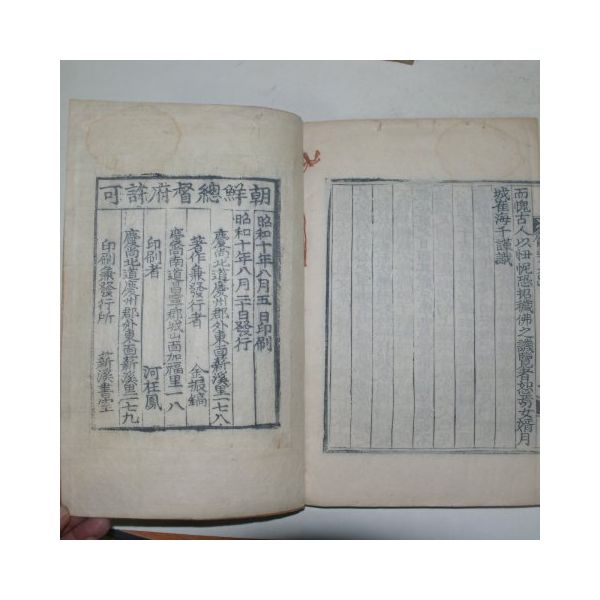 而愧古人以忸怩恐招穢佛之譏覽者恕焉女婿月
城崔海千謹識
朝鮮總督府許可
昭和十年八月五日印刷
昭和十年八月二十日發行
慶尙北道慶州郡外東面薪溪里一七八
著作兼發行者 金振鎬
慶尙南道昌寧郡城山面加福里一八
印刷者 河在鳳
慶尙北道慶州郡外東面薪溪里二七九
印刷兼發行所 薪溪書堂